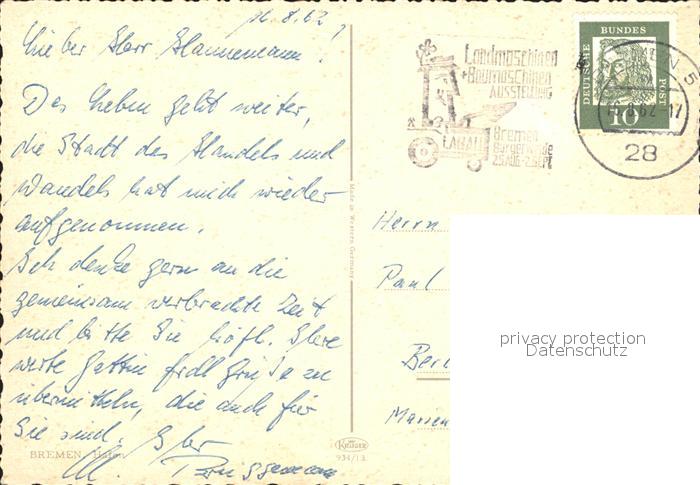 16.8.62
Lieber Herr Hannemann!
Das Leben geht weiter,
die Stadt des Handels und
Wandels hat mich wieder
aufgenommen.
Ich denke gern an die
gemeinsam verbrachte Zeit
und bitte Sie höfl. Ihre
werte Gattin frdl Grüße zu
übermitteln, die auch für
Sie sind. Ihr
BREMEN, Hafen
Made in Western Germany
Krüger
934/13
Landmaschinen
+Baumaschinen
AUSSTELLUNG
LABAU
Bremen
Bürgerweide
25.AUG.-2.SEPT
DEUTSCHE BUNDES POST
10
28
Herrn
Paul
privacy protection
Datenschutz